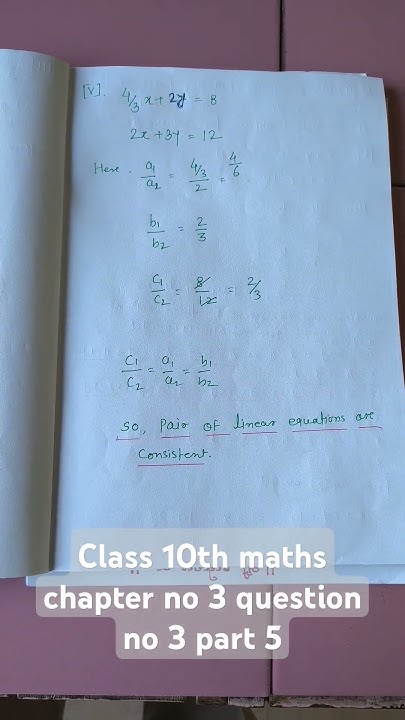 [V]. 4/3 x + 2y = 8
2x + 3y = 12
Here, a1/a2 = 4/3/2 = 4/6
b1/b2 = 2/3
C1/C2 = 8/12 = 2/3
C1/C2 = a1/a2 = b1/b2
So, Pair of linear equations are
Consistent.
Class 10th maths
chapter no 3 question
no 3 part 5